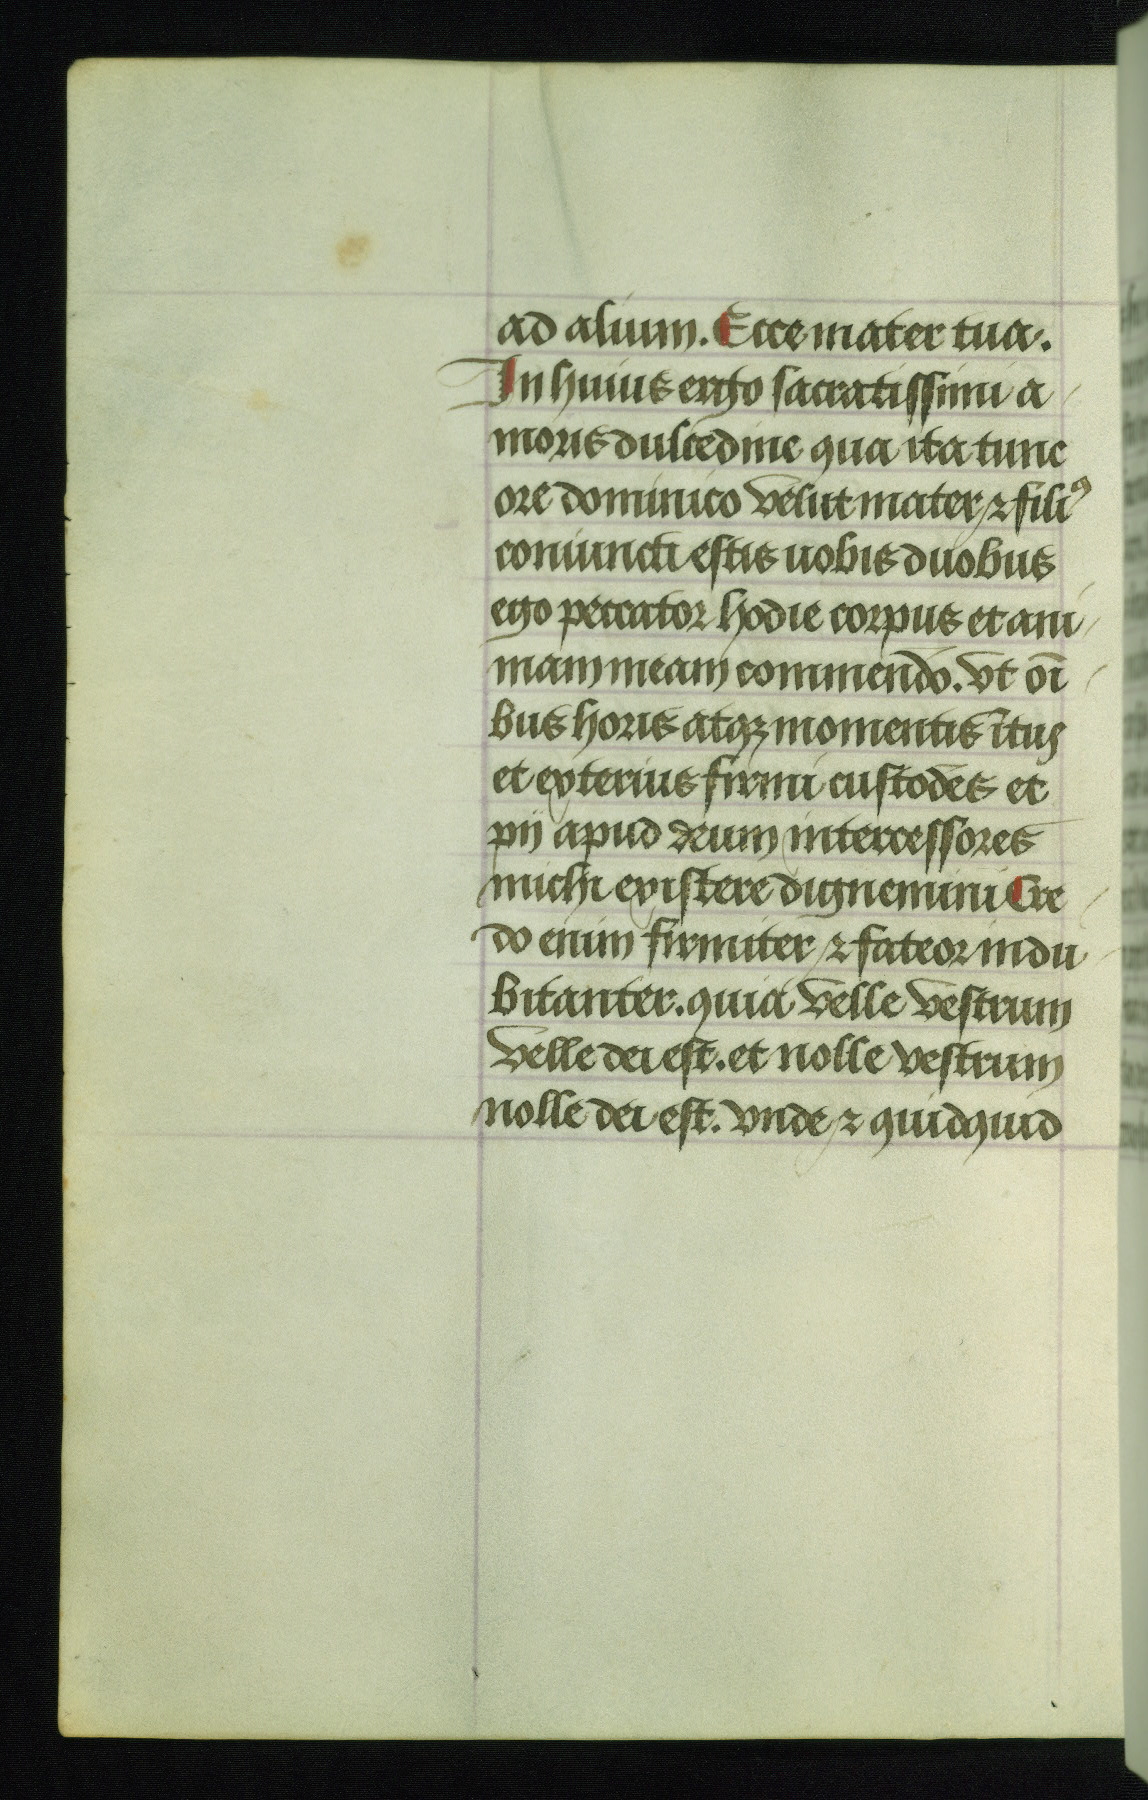 ad alium. Ecce mater tua.
In huius ergo sacratissimi a
moris dulcedine qua ita tunc
ore dominico velut mater ⁊ filiꝰ
coniuncti estis uobis duobus
ego peccator hodie corpus et ani
mam meam commendo. vt oĩ
bus horis atqꝫ momentis ĩtus
et exterius firmi custodes et
pij apud deum intercessores
michi existere dignemini Cre
do enim firmiter ⁊ fateor indu
bitanter. quia velle vestrum
velle dei est. et nolle vestrum
nolle dei est. vnde ⁊ quidquid